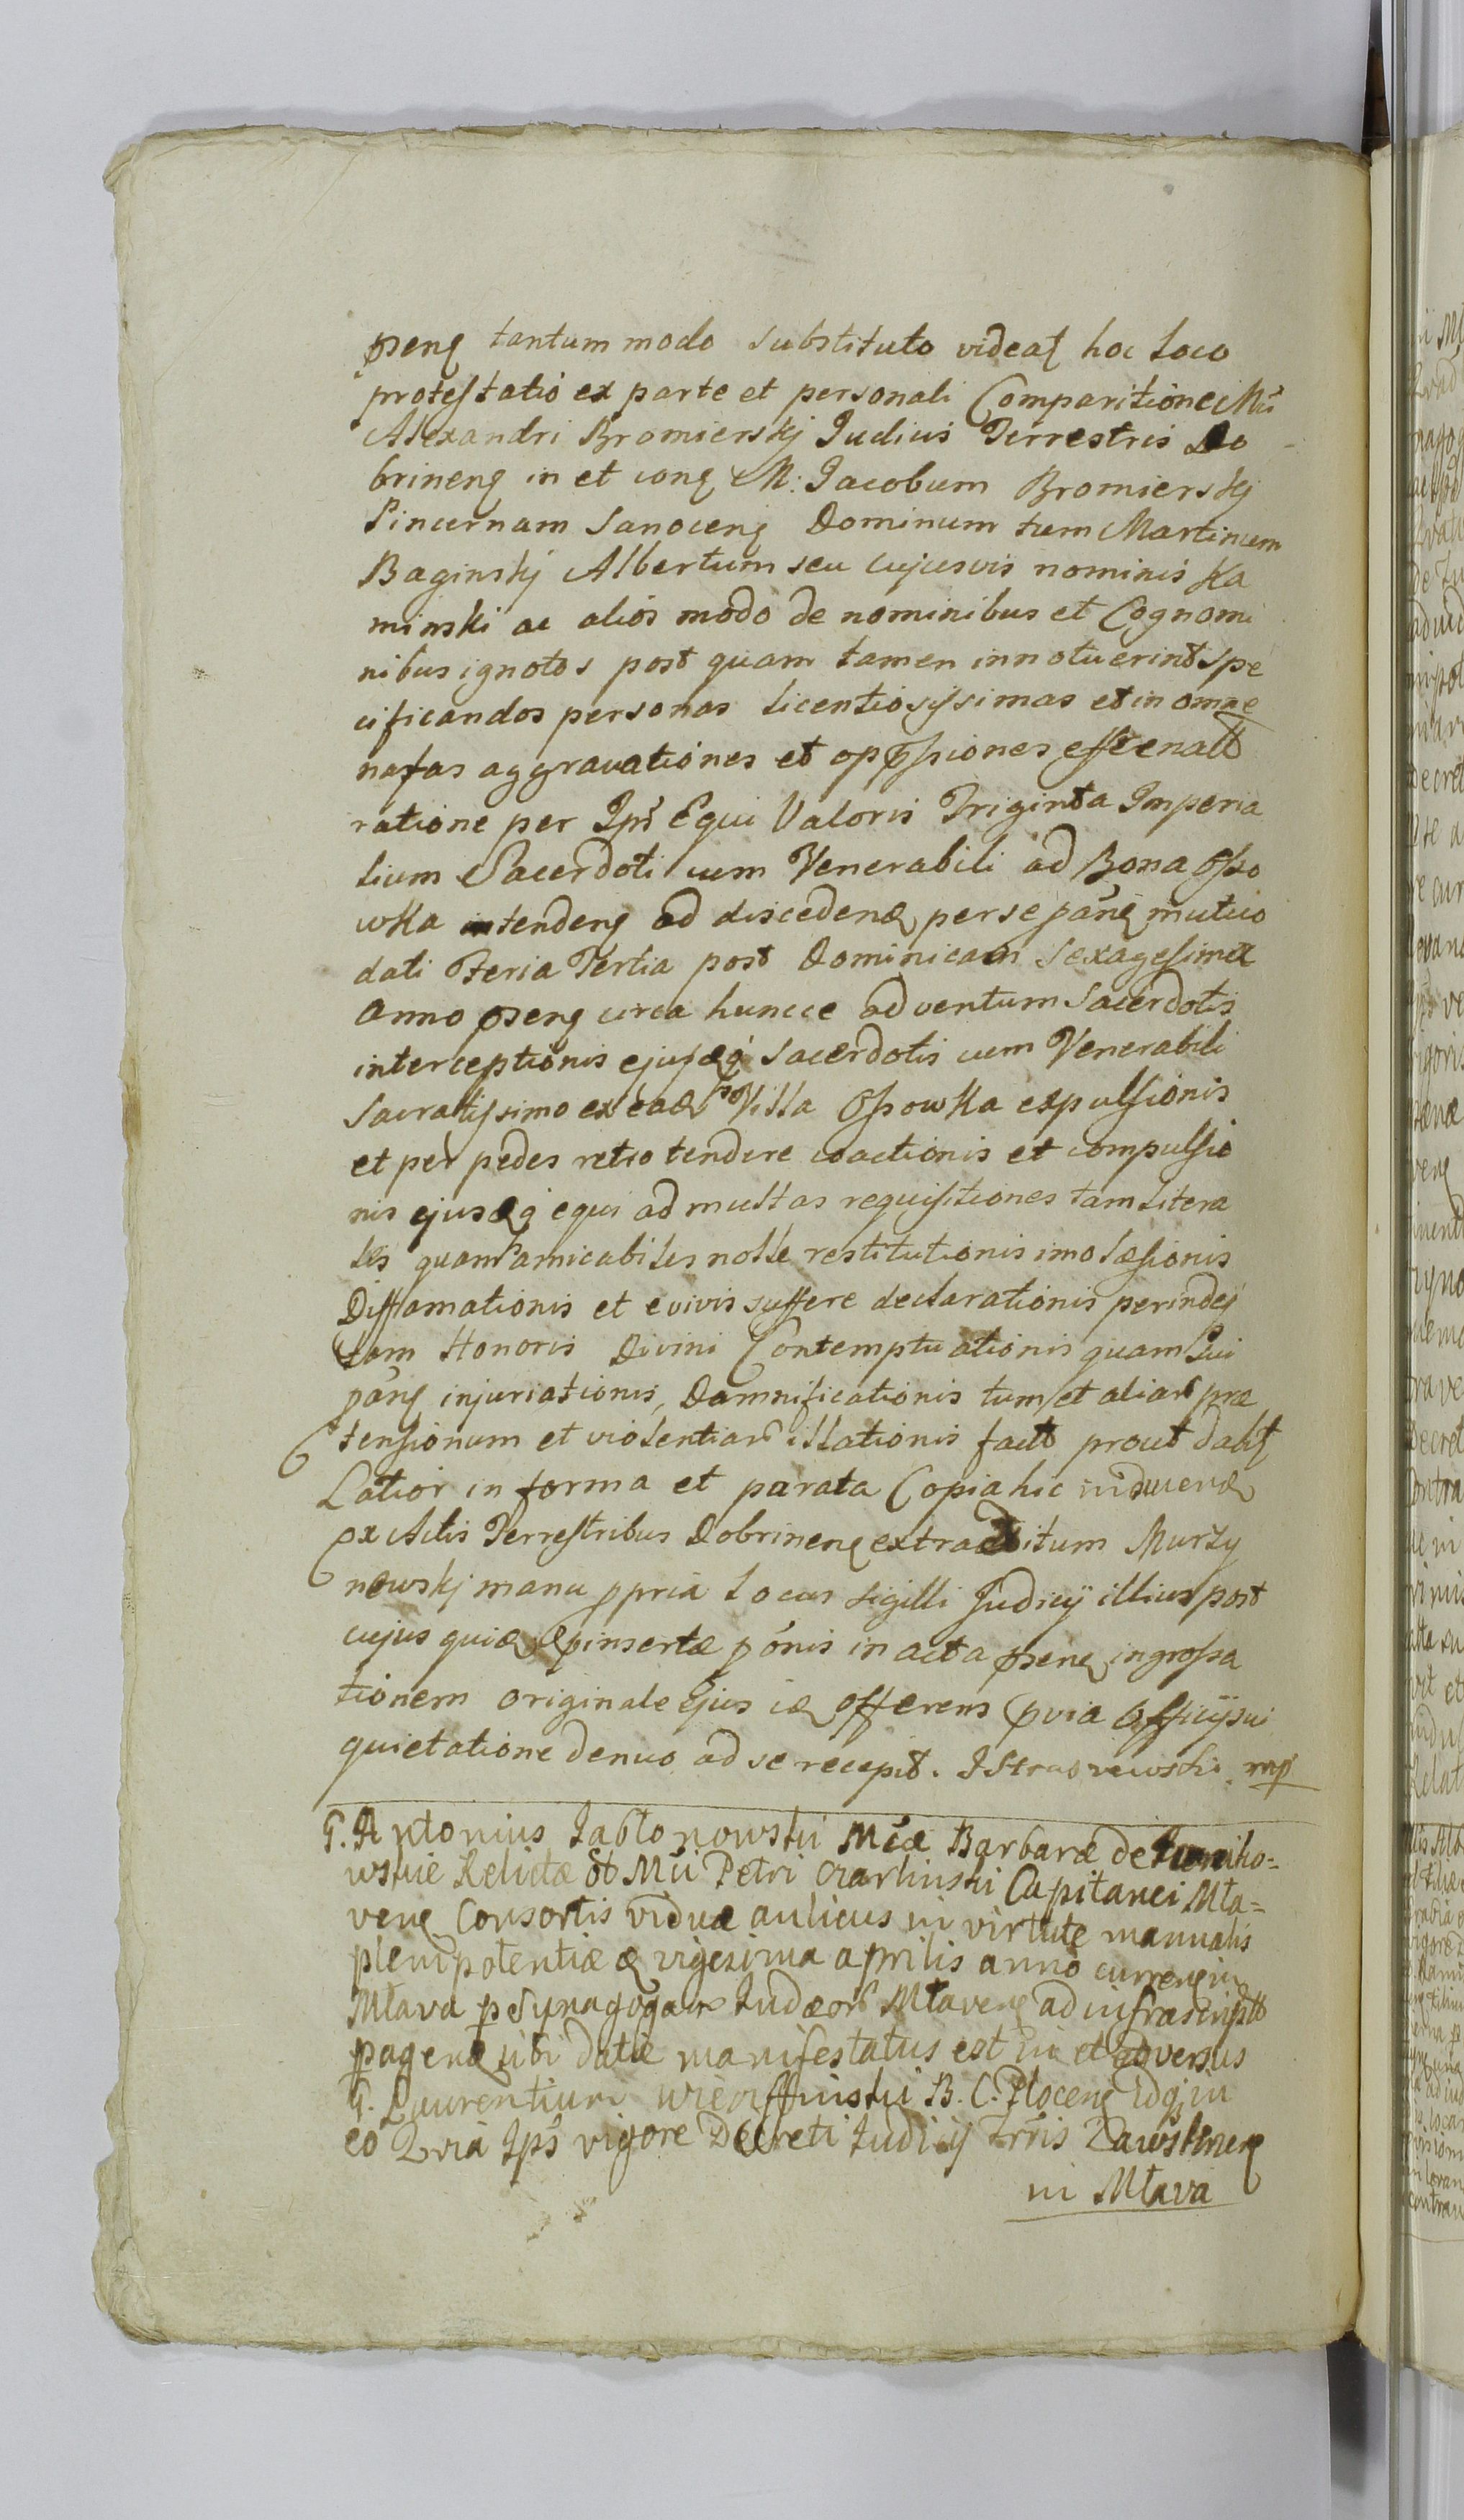 pseng tantum modo substituto videat hoc Loco
protestatio ex parte et personali Comparitione Mci
Alexandri Bromierskj Judicis Terrestris Do
brineng in et cong M: Jacobum Bromierskj
Pincernam Sanoceng Dominum tum Martinum
Baginskj Albertum seu cujusvis nominis Ka
minski ac alios modo de nominibus et Cognomi
nibus ignotos post quam tamen innotuerint spe
cificandos personas licentiosissimas et in omne
nefas aggravationes et oppssiones effrenatt
ratione per Ips Equi Valoris Triginta Imperia
lium Sacerdoti cum Venerabili ad Bona Osso
wka intendeng ad discedend per se pang mutuo
dati Feria Tertia post Dominicam Sexagesimæ
anno pseng circa huncce adventum Sacerdotis
interceptionis ejusdq Sacerdotis cum Venerabili
Sacratissimo ex ead Villa Ossowka expulsionis
et per pedes retro tendere coactionis et compulsio
nis ejusdq equi ad multas requisitiones tam litera
les quam amicabiles nolle restitutionis imo læsionis
Diffamationis et e vivis suffere declarationis perindej
tam Honoris Divini Contemptuationis quam Sui
pang injuriationis, Damnificationis tum et aliar præ
tensionum et violentiar illationis fact prout dabit
Latior in forma et parata Copia hic inducend
ex Actis Terrestribus Dobrineng extradditum Murzy
nowskj manu ppria Locus Sigilli Judicij illius post
cujus quid pinsertæ ponis in acta pseng ingrossa
tionem originale Ejus id offerens pvia Officij sui
quietatione denuo ad se recepit. mp
G. Antonius Jabłonowski Mcæ Barbaræ de
wskie Relictæ ol Mci Petri Czarlinski Capitanei Mła=
veng Consortis viduæ aulicus in virtute manualis
plenipotentiæ d vigesima aprilis anno curreng in
Mława p Synagogam Judæor Młaveng ad infrascriptt
pagend sibi datæ manifestatus est in et adversus
G. Laurentium B. C. Ploceng Idq in
eo Qvia Ips vigore Decreti Judicij Trris Zawskrneng
in Mława